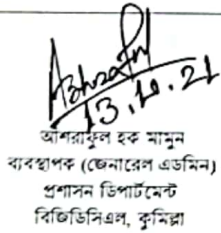 Ashraful
13.10.21
আশরাফুল হক মামুন
ব্যবস্থাপক (জেনারেল এডমিন)
প্রশাসন ডিপার্টমেন্ট
বিজিডিসিএল, কুমিল্লা